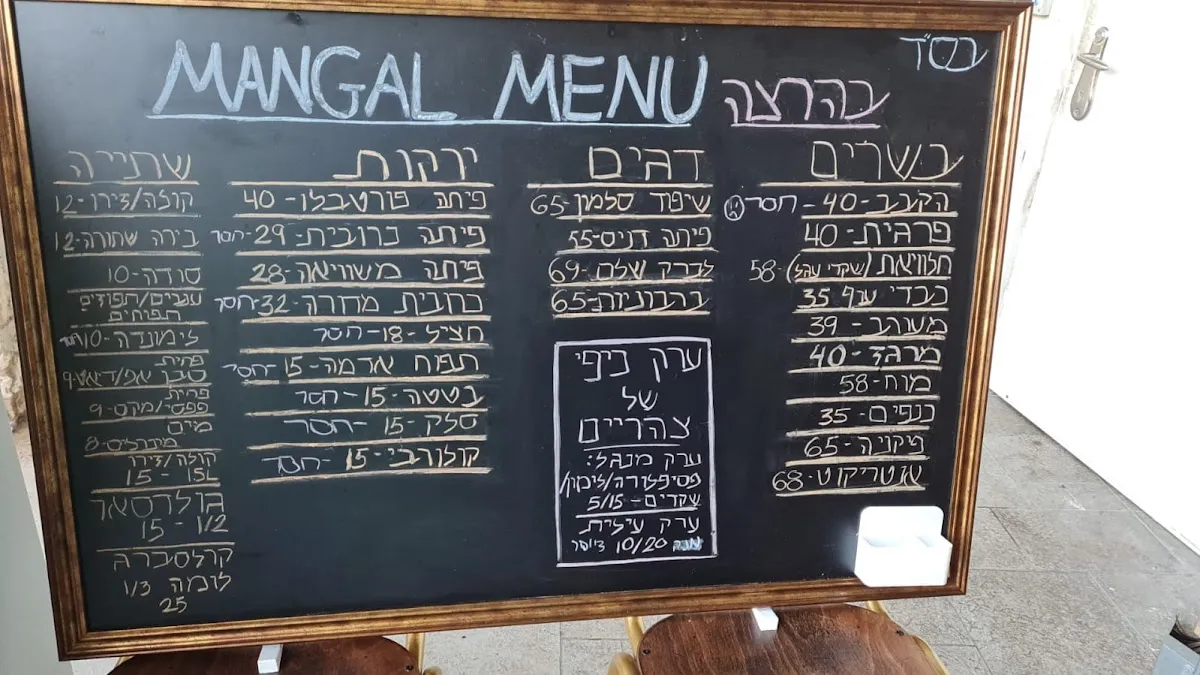 בס"ד
MANGAL MENU בהרצה
בשרים
הקבב - 40 - חסר
פרגית - 40
חלוויאת (שקדי עגל) - 58
כבדי עוף 35
משוהב - 39
מרגז - 40
מוח - 58
כנפים - 35
פיקניה - 65
אנטריקוט - 68
דגים
שיפוד סלמון - 65
פיתה דניס - 55
לברק שלם - 69
ברבוניות - 65
ערק כיפי
של
צהריים
ערק מנגל:
פסיפלורה/לימון/
שקדים - 5/15
ערק עילית
10/20
ירקות
פיתה פורטבלו - 40
פיתה כרובית - 29 - חסר
פיתה משוויאה - 28
כרובית מדורה - 32 - חסר
חציל - 18 - חסר
תפוח אדמה - 15 - חסר
בטטה - 15 - חסר
סלק - 15 - חסר
קולורבי - 15 - חסר
שתייה
קולה/זירו - 12
בירה שחורה - 12
סודה - 10
ענבים/תפוזים
תפוחים
לימונדה - 10
פחית
סבן אפ/דיאט - 9
פחית
פפסי/מקס - 9
מים
מינרלים - 8
קולה/זירו
15 - 1.5L
גולדסטאר
15 - 1/2
קרלסברג
לומה 1/3
25